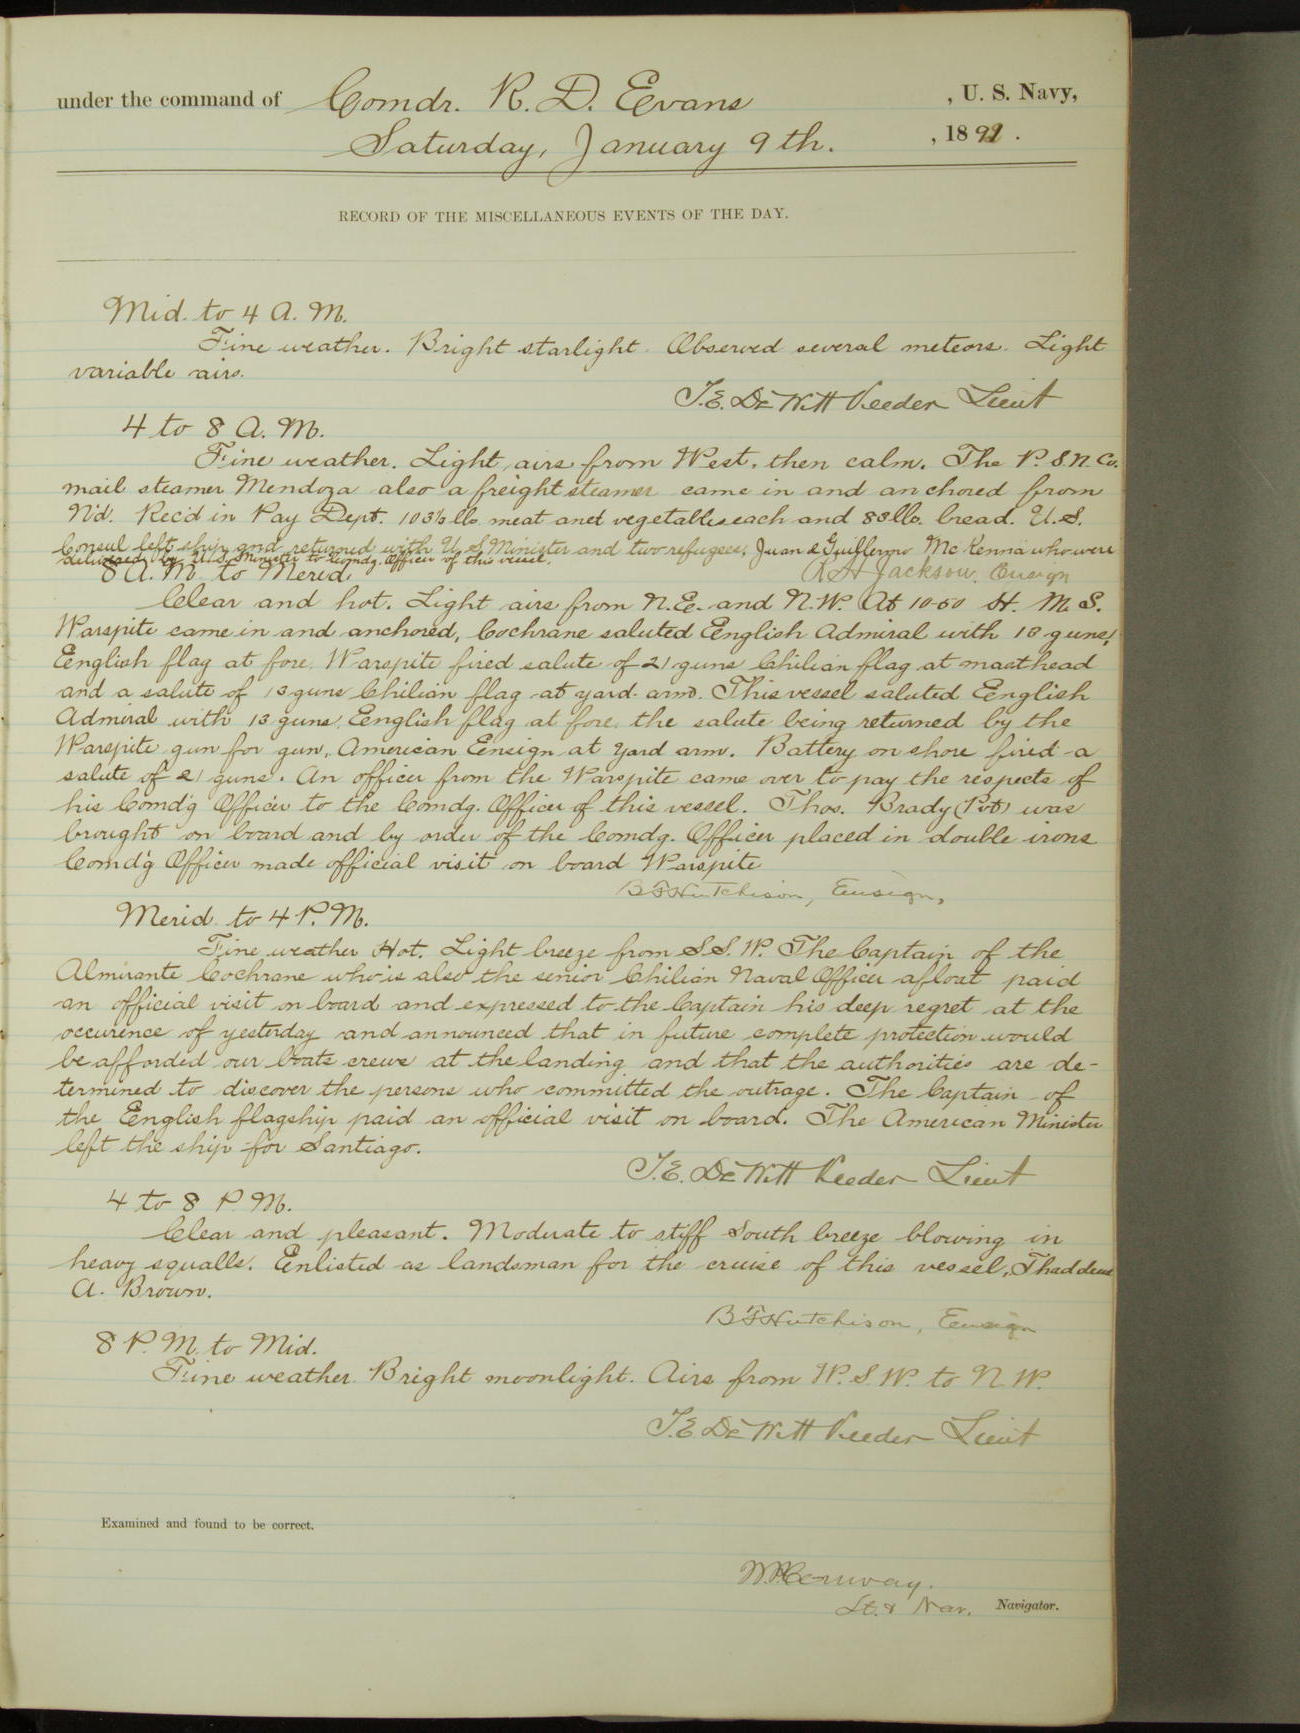 under the command of Comdr. R. D. Evans , U. S. Navy,
Saturday, January 9th. , 1892 .
RECORD OF THE MISCELLANEOUS EVENTS OF THE DAY.
Mid. to 4 A. M.
Fine weather. Bright starlight. Observed several meteors. Light
variable airs.
T.E. DeWitt Veeder Lieut
4 to 8 A. M.
Fine weather. Light airs from West, then calm. The P. S. N. Co.
mail steamer Mendoza also a freight steamer came in and anchored from
N'd. Rec'd in Pay Dept. 103½ lbs meat and vegetables each and 83 lbs. bread. U. S.
Consul left ship and returned with U S Minister and two refugees, Juan & Guillermo McKenna who were
delivered by U.S. Minister to Comdg. Officer of this vessel.
R H Jackson, Ensign
8 A. M. to Merid.
Clear and hot. Light airs from N. E. and N. W. At 10-50 H. M. S.
Warspite came in and anchored, Cochrane saluted English Admiral with 13 guns,
English flag at fore. Warspite fired salute of 21 guns Chilian flag at masthead
and a salute of 13 guns Chilian flag at yard-arm. This vessel saluted English
Admiral with 13 guns, English flag at fore, the salute being returned by the
Warspite gun for gun, American Ensign at yard arm. Battery on shore fired a
salute of 21 guns. An officer from the Warspite came over to pay the respects of
his Comd'g Officer to the Comdg. Officer of this vessel. Thos. Brady (Pvt) was
brought on board and by order of the Comdg. Officer placed in double irons
Comd'g Officer made official visit on board Warspite
B F Hutchison, Ensign.
Merid. to 4 P. M.
Fine weather Hot. Light breeze from S. S. W. The Captain of the
Almirante Cochrane who is also the senior Chilian Naval Officer afloat paid
an official visit on board and expressed to the Captain his deep regret at the
occurence of yesterday and announced that in future complete protection would
be afforded our boats crews at the landing and that the authorities are de-
termined to discover the persons who committed the outrage. The Captain of
the English flagship paid an official visit on board. The American Minister
left the ship for Santiago.
T.E. DeWitt Veeder Lieut
4 to 8 P. M.
Clear and pleasant. Moderate to stiff South breeze blowing in
heavy squalls. Enlisted as landsman for the cruise of this vessel, Thaddeus
A. Brown.
B F Hutchison, Ensign
8 P. M. to Mid.
Fine weather. Bright moonlight. Airs from W. S. W. to N. W.
T.E. DeWitt Veeder Lieut
Examined and found to be correct.
Conway.
Lt. & Nav. Navigator.